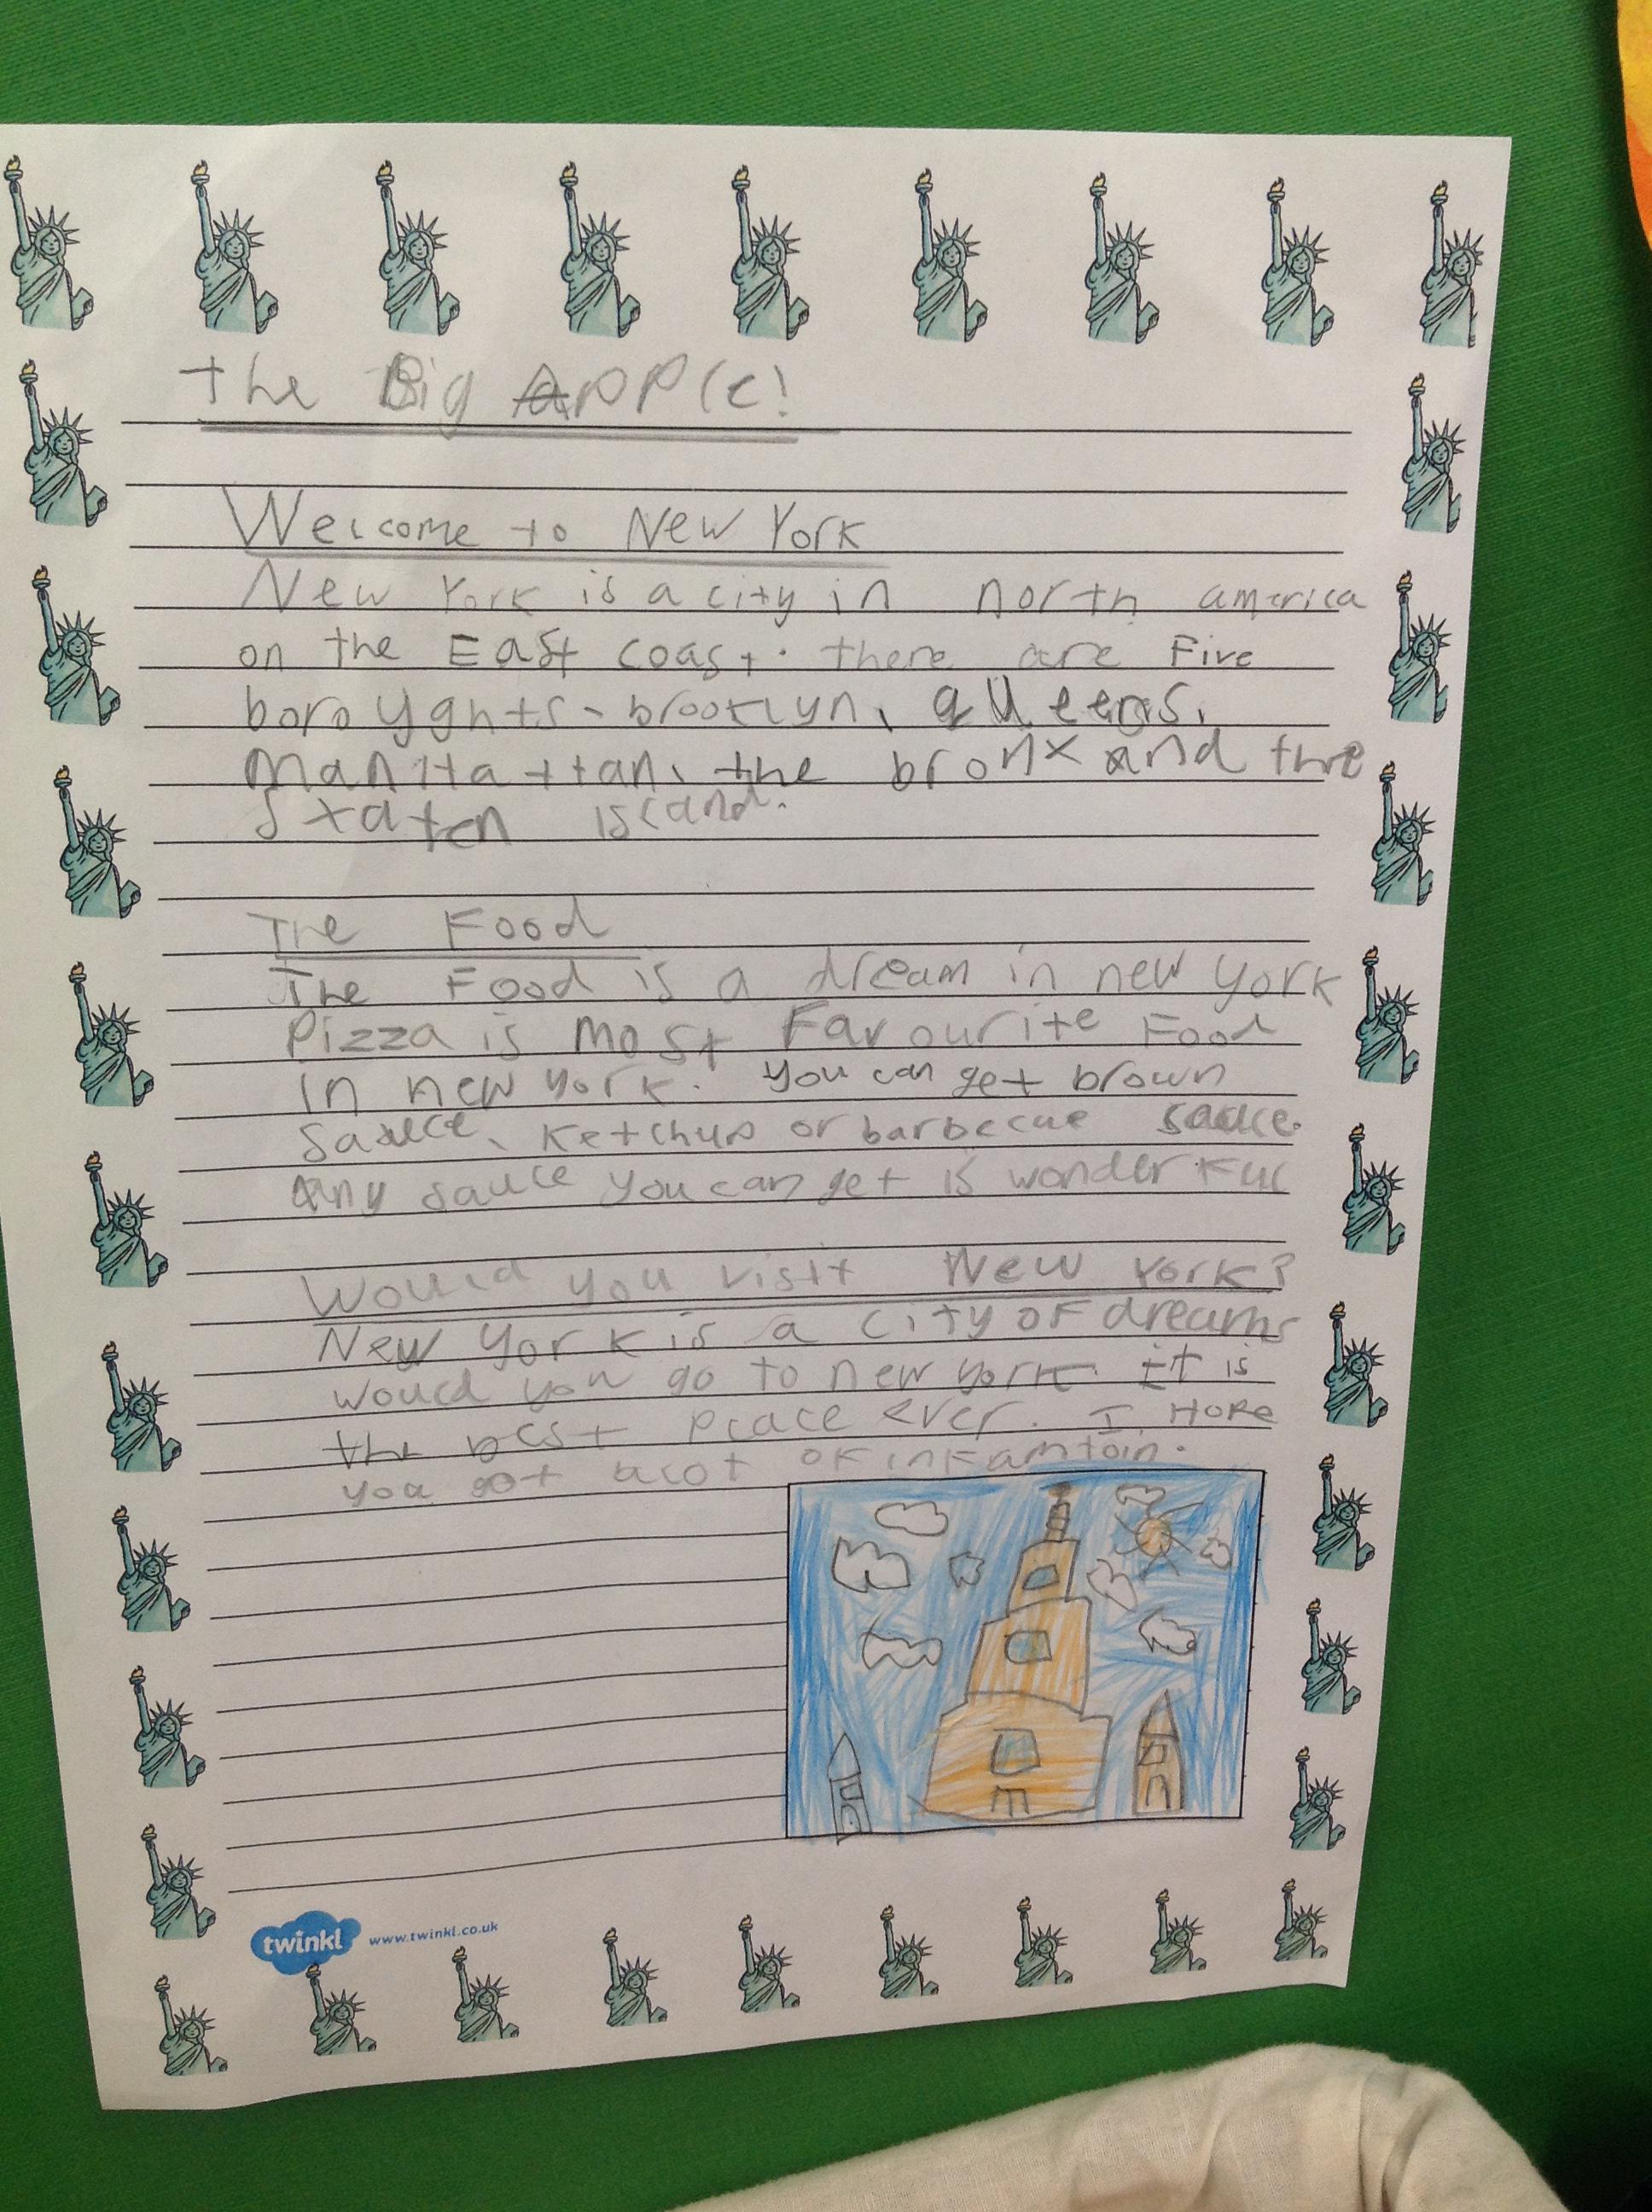 the Big APPle!
Welcome to New York
New York is a city in north america
on the East coast. there are Five
boroyghts - brooklyn, queens,
Manhattan, the bronx and the
Staten island.
The Food
The Food is a dream in new york
Pizza is most Favourite Food
in new york. you can get brown
Sauce, ketchup or barbecue sauce.
Any sauce you can get is wonderful
Would you visit New York?
New York is a city of dreams
would you go to new york. it is
the best place ever. I Hope
you got alot of infamtoin.
twinkl www.twinkl.co.uk